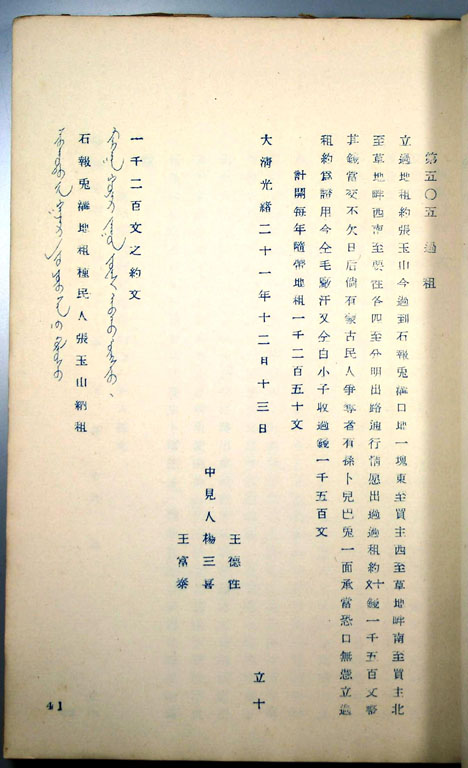 第五〇五　過租
立過地租約張玉山今過到石報兎溝口地一塊東至買主西至草地畔南至買主北
至草地畔西南至要性各四至分明出路通行情愿出過過租約錢一千五百文
其錢當交不欠日后倘有蒙古民人爭奪者有孫卜兒巴兎一面承當恐口無憑立過
租約爲證用今仝毛汗又仝白小子收過錢一千五百文
計開每年隨帶地租一千二百五十文
大清光緖二十一年十二日十三日
立十
王德性
中見人楊三喜
王富泰
一千二百文之約文
石報兎溝地租種民人張玉山納租
41